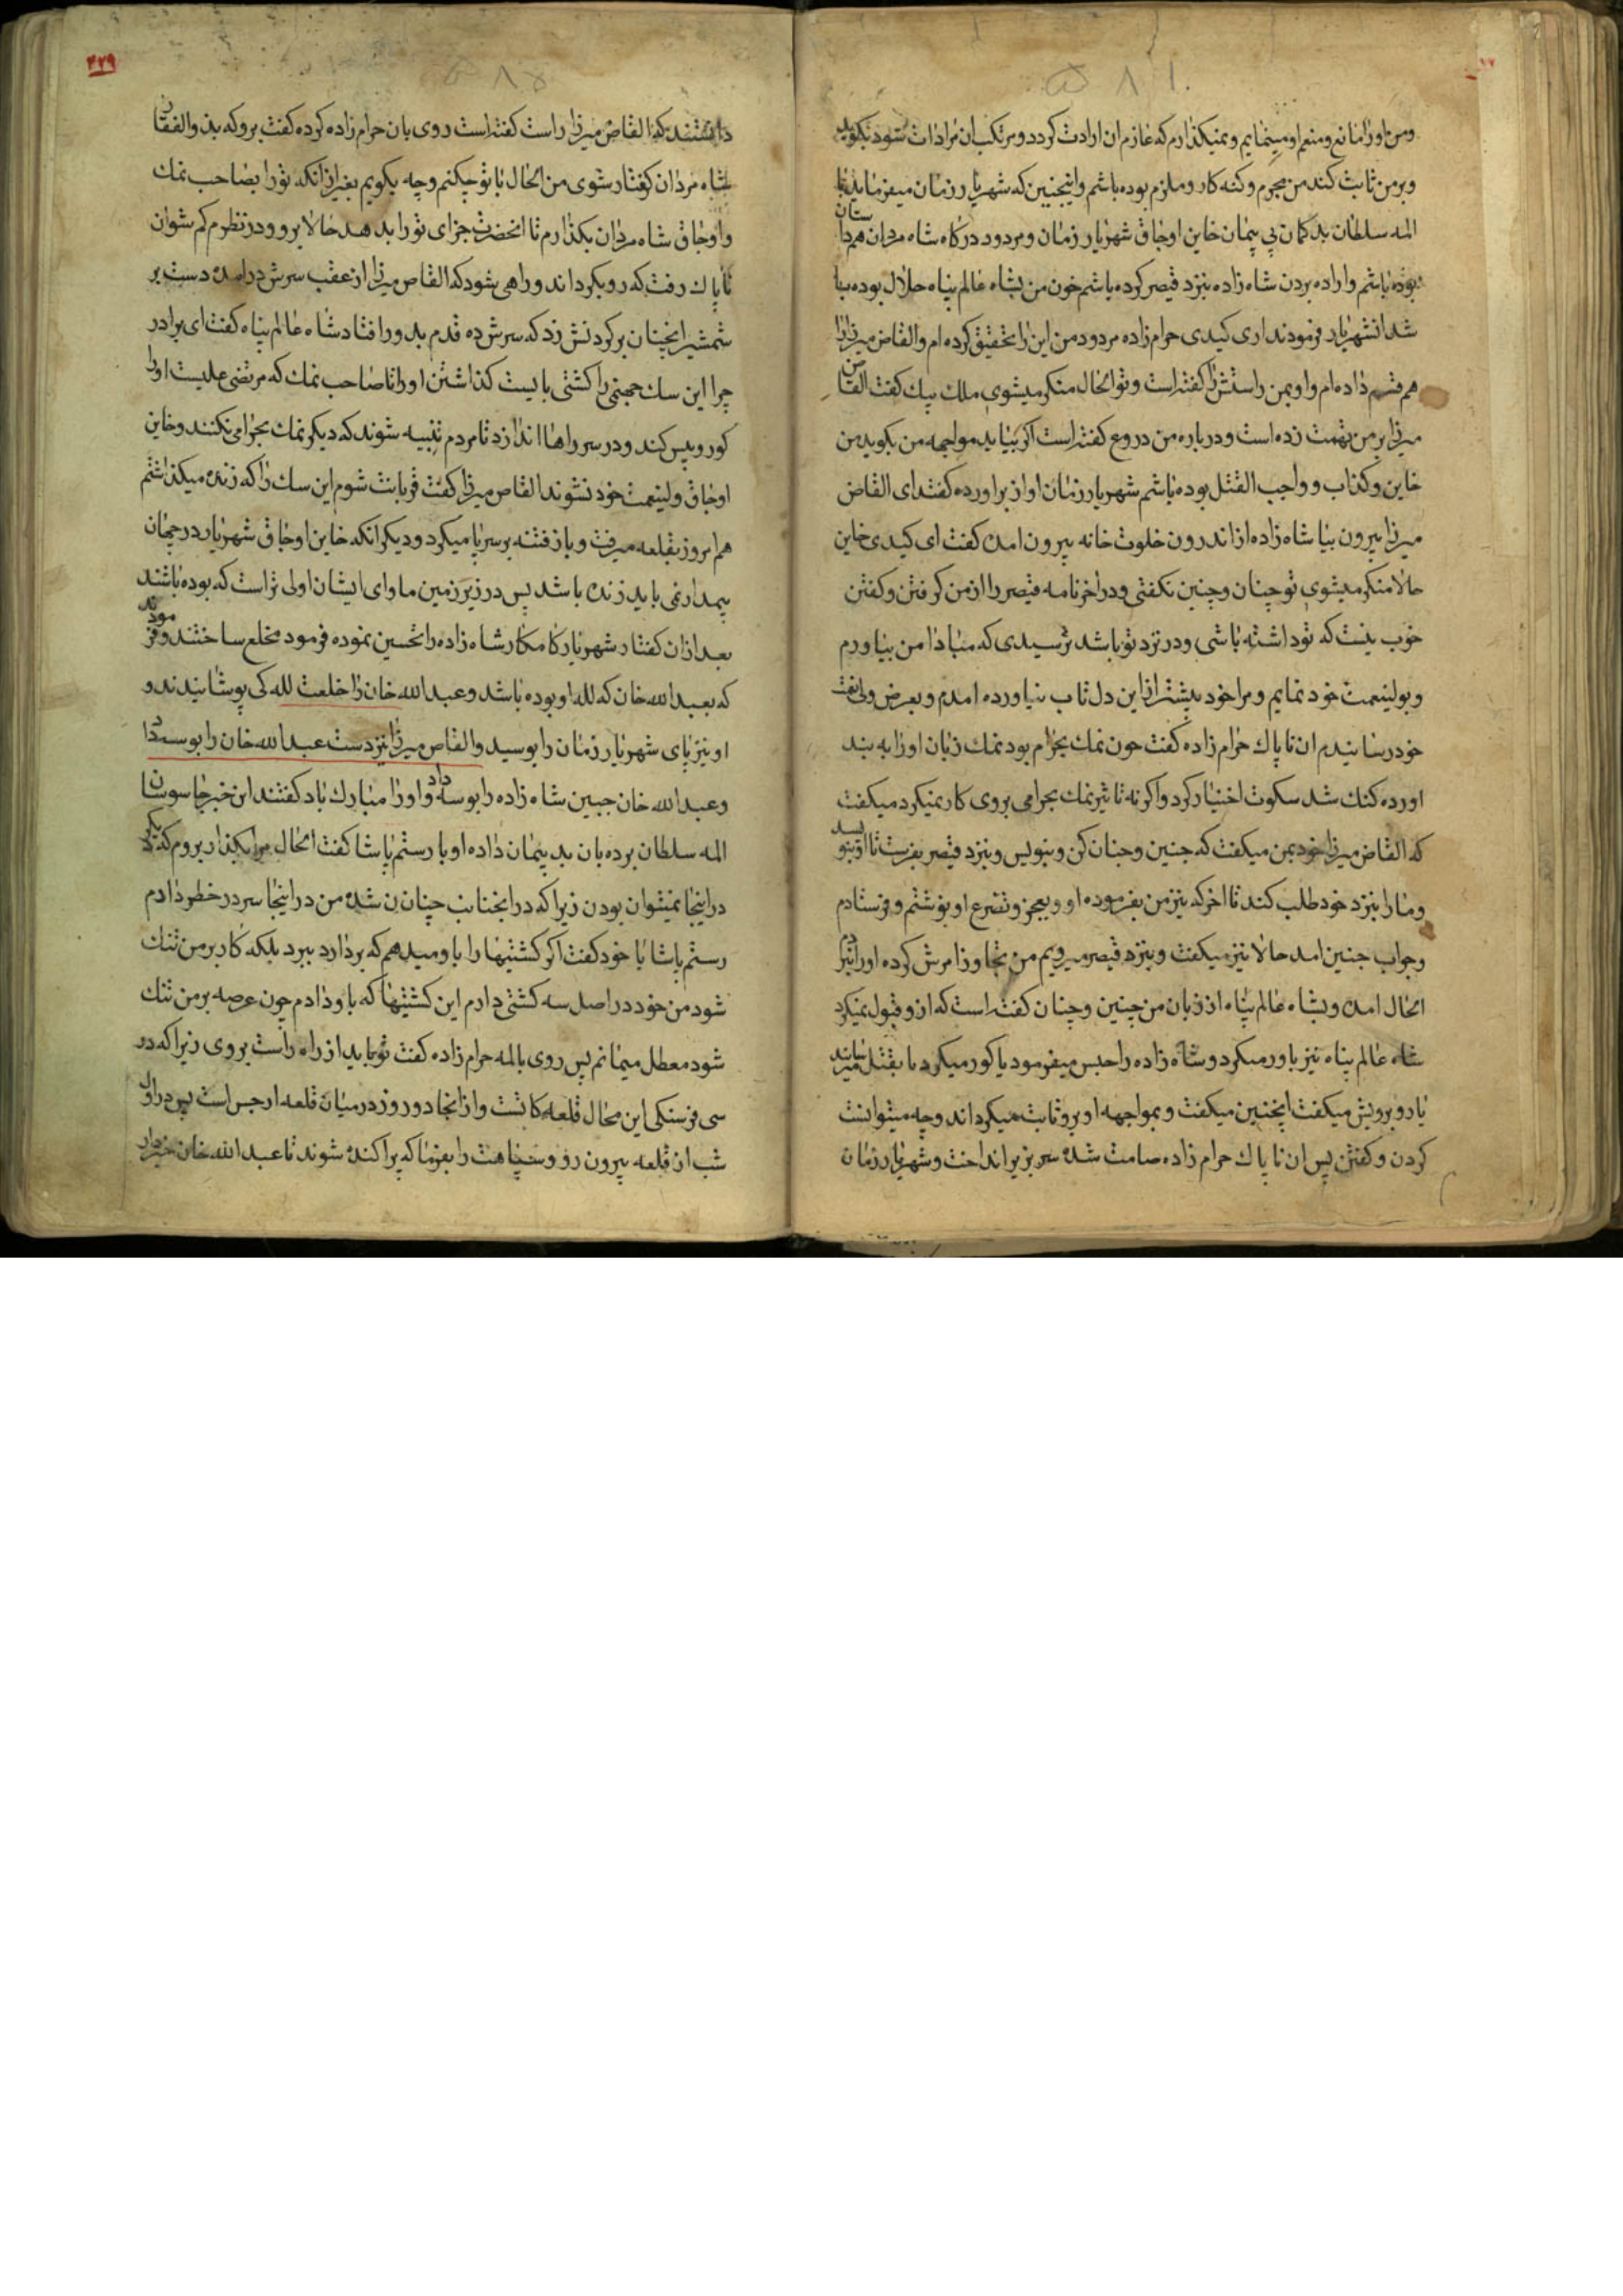 ۵۸۱
ومن اورا مانع ومنعم او مینمایم ونمیکذارم که عازم ان ارادت کردد ومرتکب ان مرادات شود بکوید
وبرمن ثابت کند من مجرم وکنه کار وملزم بوده باشم واینچنین که شهریار زمان میفرماید با
المه سلطان بد کمان بی پیمان خاین اوجاق شهریار زمان ومردود درکاه شاه مردان همداستان
بوده باشم واراده بردن شاه زاده بنزد قیصر کرده باشم خون من بشاه عالم پناه حلال بوده با
شد انشهریار فرمودند اری کیدی حرام زاده مردود من این را تحقیق کرده ام والقاص میرزا را
هم قسم داده ام واو بمن راستش را کفته است وتو الحال منکر میشوی ملک بیک کفت القاص
میرزا بر من تهمت زده است ودرباره من دروغ کفته است اکر بیاید مواجهه من بکوید من
خاین وکذاب وواجب القتل بوده باشم شهریار زمان اواز براورده کفتد ای القاص
میرزا بیرون بیا شاه زاده از اندرون خلوت خانه بیرون امده کفت ای کیدی خاین
حالا منکر میشوی تو چنان وچنین نکفتی ودر اخر نامه قیصر را از من کرفتن وکفتن
خوب نیست که تو داشته باشی ودر نزد تو باشد ترسیدی که مبادا من بیاورم
وبولینعمت خود نمایم ومرا خود بیشتر ازاین دل تاب نیاورده امدم وبعرض ولی نعمت
خود رسانیدم ان ناپاک حرام زاده کفت چون نمک بحرام بود نمک زبان اورا به بند
اورده کنک شد سکوت اختیار کرد واکرنه تاثیر نمک بحرامی بروی کار نمیکرد میکفت
که القاص میرزا خود بمن میکفت که چنین وچنان کن وبنویس وبنزد قیصر بفرست تا او بنویسد
ومارا بنزد خود طلب کند تا اخر که نیز من بفرموده او وبعجز وتضرع او نوشتم وفرستادم
وجواب چنین امد حالا نیز میکفت وبنزد قیصر میرویم من تجاوز از امرش کرده اورا نبردم
الحال امده وبشاه عالم پناه از زبان من چنین وچنان کفته است که ازو قبول نمیکرد
شاه عالم پناه نیز باور میکرد وشاه زاده را حبس میفرمود یا کور میکرد یا بقتل میرسانید
یا روبرویش میکفت اینچنین میکفت وبمواجهه او بروثابت میکرداند وچه میتوانست
کردن وکفتن پس ان ناپاک حرام زاده صامت شده سر بزیر انداخت وشهریار زمان
۴۲۹
۵۸۵
دانستند که القاص میرزا راست کفته است روی بان حرام زاده کرده کفت برو که بذوالفقار
شاه مردان کرفتار شوی من الحال با تو چکنم وچه بکویم بغیر از انکه تورا بصاحب نمک
واوجاق شاه مردان بکذارم تا انحضرت جزای تورا بدهد حالا برو ودر نظرم کم شو ان
ناپاک رفت که رو بکرداند وراهی شود که القاص میرزا از عقب سرش درامده دست بر
شمشیر انچنان بر کردنش زد که سرش ده قدم بدور افتاد شاه عالم پناه کفت ای برادر
چرا این سک جهنمی را کشتی بایست کذاشتن اورا تا صاحب نمک که مرتضی علیست اورا
کور وپیس کند ودر سر راهها اندازد تا مردم تنبیه شوند که دیکر نمک بحرامی نکنند وخاین
اوجاق ولینعمت خود نشوند القاص میرزا کفت قربانت شوم این سک را که زنده میکذاشتم
هم امروز بقلعه میرفت وباز فتنه بر سر پا میکرد ودیکر انکه خاین اوجاق شهریار در جهان
پیمدار نمی باید زنده باشد پس در زیر زمین ماوای ایشان اولی تراست که بوده باشند
بعد ازان کفتار شهریار کامکار شاه زاده را تحسین نموده فرمود مخلع ساختند وفرمودند
که بعبدالله خان که لله او بوده باشد وعبدالله خان را خلعت لله کی پوشانیدند و
او نیز پای شهریار زمان را بوسید والقاص میرزا نیز دست عبدالله خان را بوسه داد
وعبدالله خان جبین شاه زاده را بوسه داد واورا مبارک باد کفتند این خبر جاسوسان
المه سلطان برده بان بد پیمان داده او با رستم پاشا کفت الحال مرا بکذار بروم که دیکر
دراینجا نمیتوان بودن زیرا که درانجانب چنان ن شده من دراینجا سر در خطر دادم
رستم پاشا با خود کفت اکر کشتیها را باو میدهم که بردارد ببرد بلکه کار بر من تنک
شود من خود دراصل سه کشتی دارم این کشتیها که باو دادم چون عرصه بر من تنک
شود معطل میمانم پس روی بالمه حرام زاده کفت تو باید از راه راست بروی زیرا که در
سی فرسنکی این محال قلعه کاتست وازانجا دو روز درمیان قلعه ارجس است پس در اول
شب ان قلعه بیرون رو وسپاهت را بفرما که پراکنده شوند تا عبدالله خان خبردار